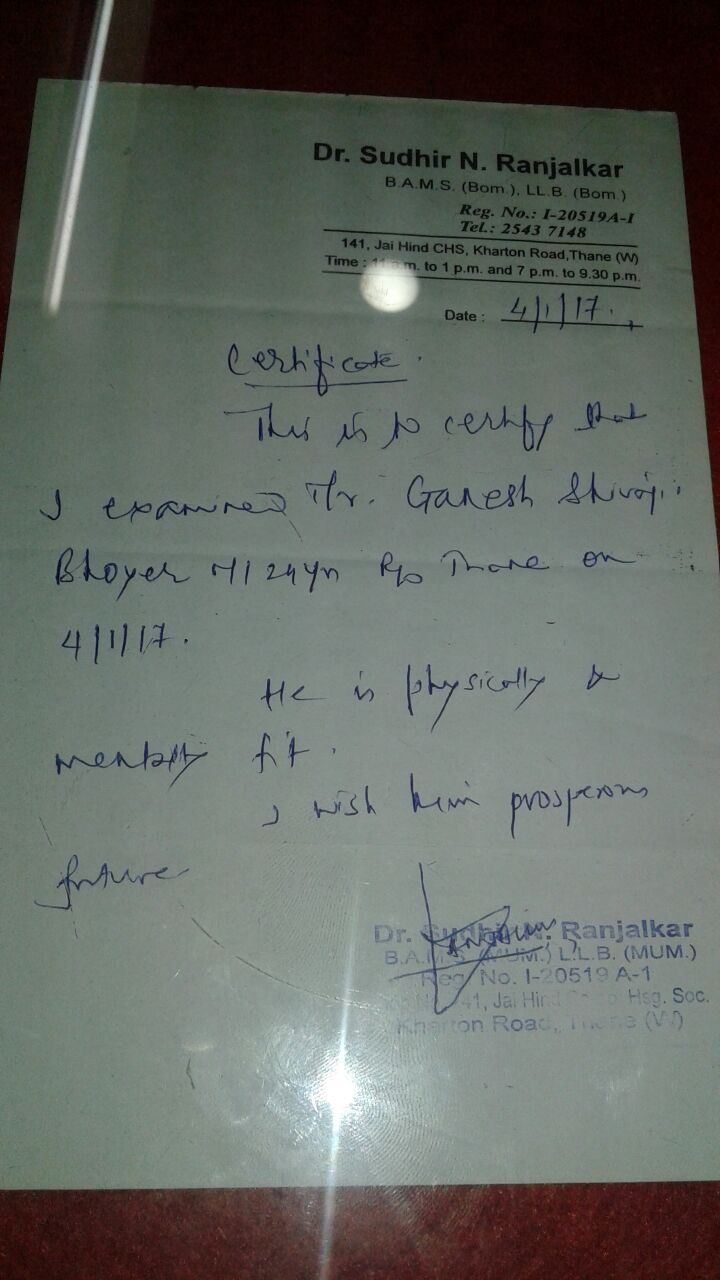 Dr. Sudhir N. Ranjalkar
B.A.M.S. (Bom.), LL.B. (Bom.)
Reg. No.: I-20519A-I
Tel.: 2543 7148
141, Jai Hind CHS, Kharton Road,Thane (W)
Time : 11 a.m. to 1 p.m. and 7 p.m. to 9.30 p.m.
Date : 4/1/17.
Certificate.
This is to certify that
I examined Mr. Ganesh Shivaji
Bhoyer M/24yr R/o Thane on
4/1/17.
He is physically &
mentally fit.
I wish him prosperous
future
Dr. Sudhir N. Ranjalkar
B.A.M.S. (MUM.) L.L.B. (MUM.)
Reg. No. I-20519 A-1
141, Jai Hind Hsg. Soc.
Kharton Road, Thane (W)